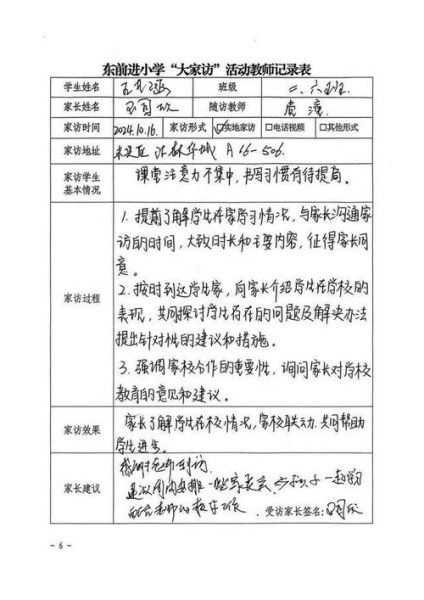 东前进小学“大家访”活动教师记录表
学生姓名 班级 二.六班
家长姓名 随访教师
家访时间 2024.10.16. 家访形式 ☑实地家访 □电话视频 □其他形式
家访地址 A 66-506.
家访学生 课堂注意力不集中,书写习惯有待提高。
基本情况
1. 提前了解学生在家学习情况,与家长沟通家
访的时间,大致时长和主要内容,征得家长同
意。
家访过程
2.按时到达学生家,向家长介绍学生在学校的
表现,共同探讨学生存在的问题及解决办法
提出针对性的建议和措施。
3. 强调家校合作的重要性,询问家长对学校
教育的意见和建议。
家访效果 家长了解学生在校情况,家校联动.共同帮助
学生进步。
感谢老师到访
家长建议 建议周内安排一些家长会,与孩子一起学习
配合老师的教学工作 受访家长签名:
- 6 -